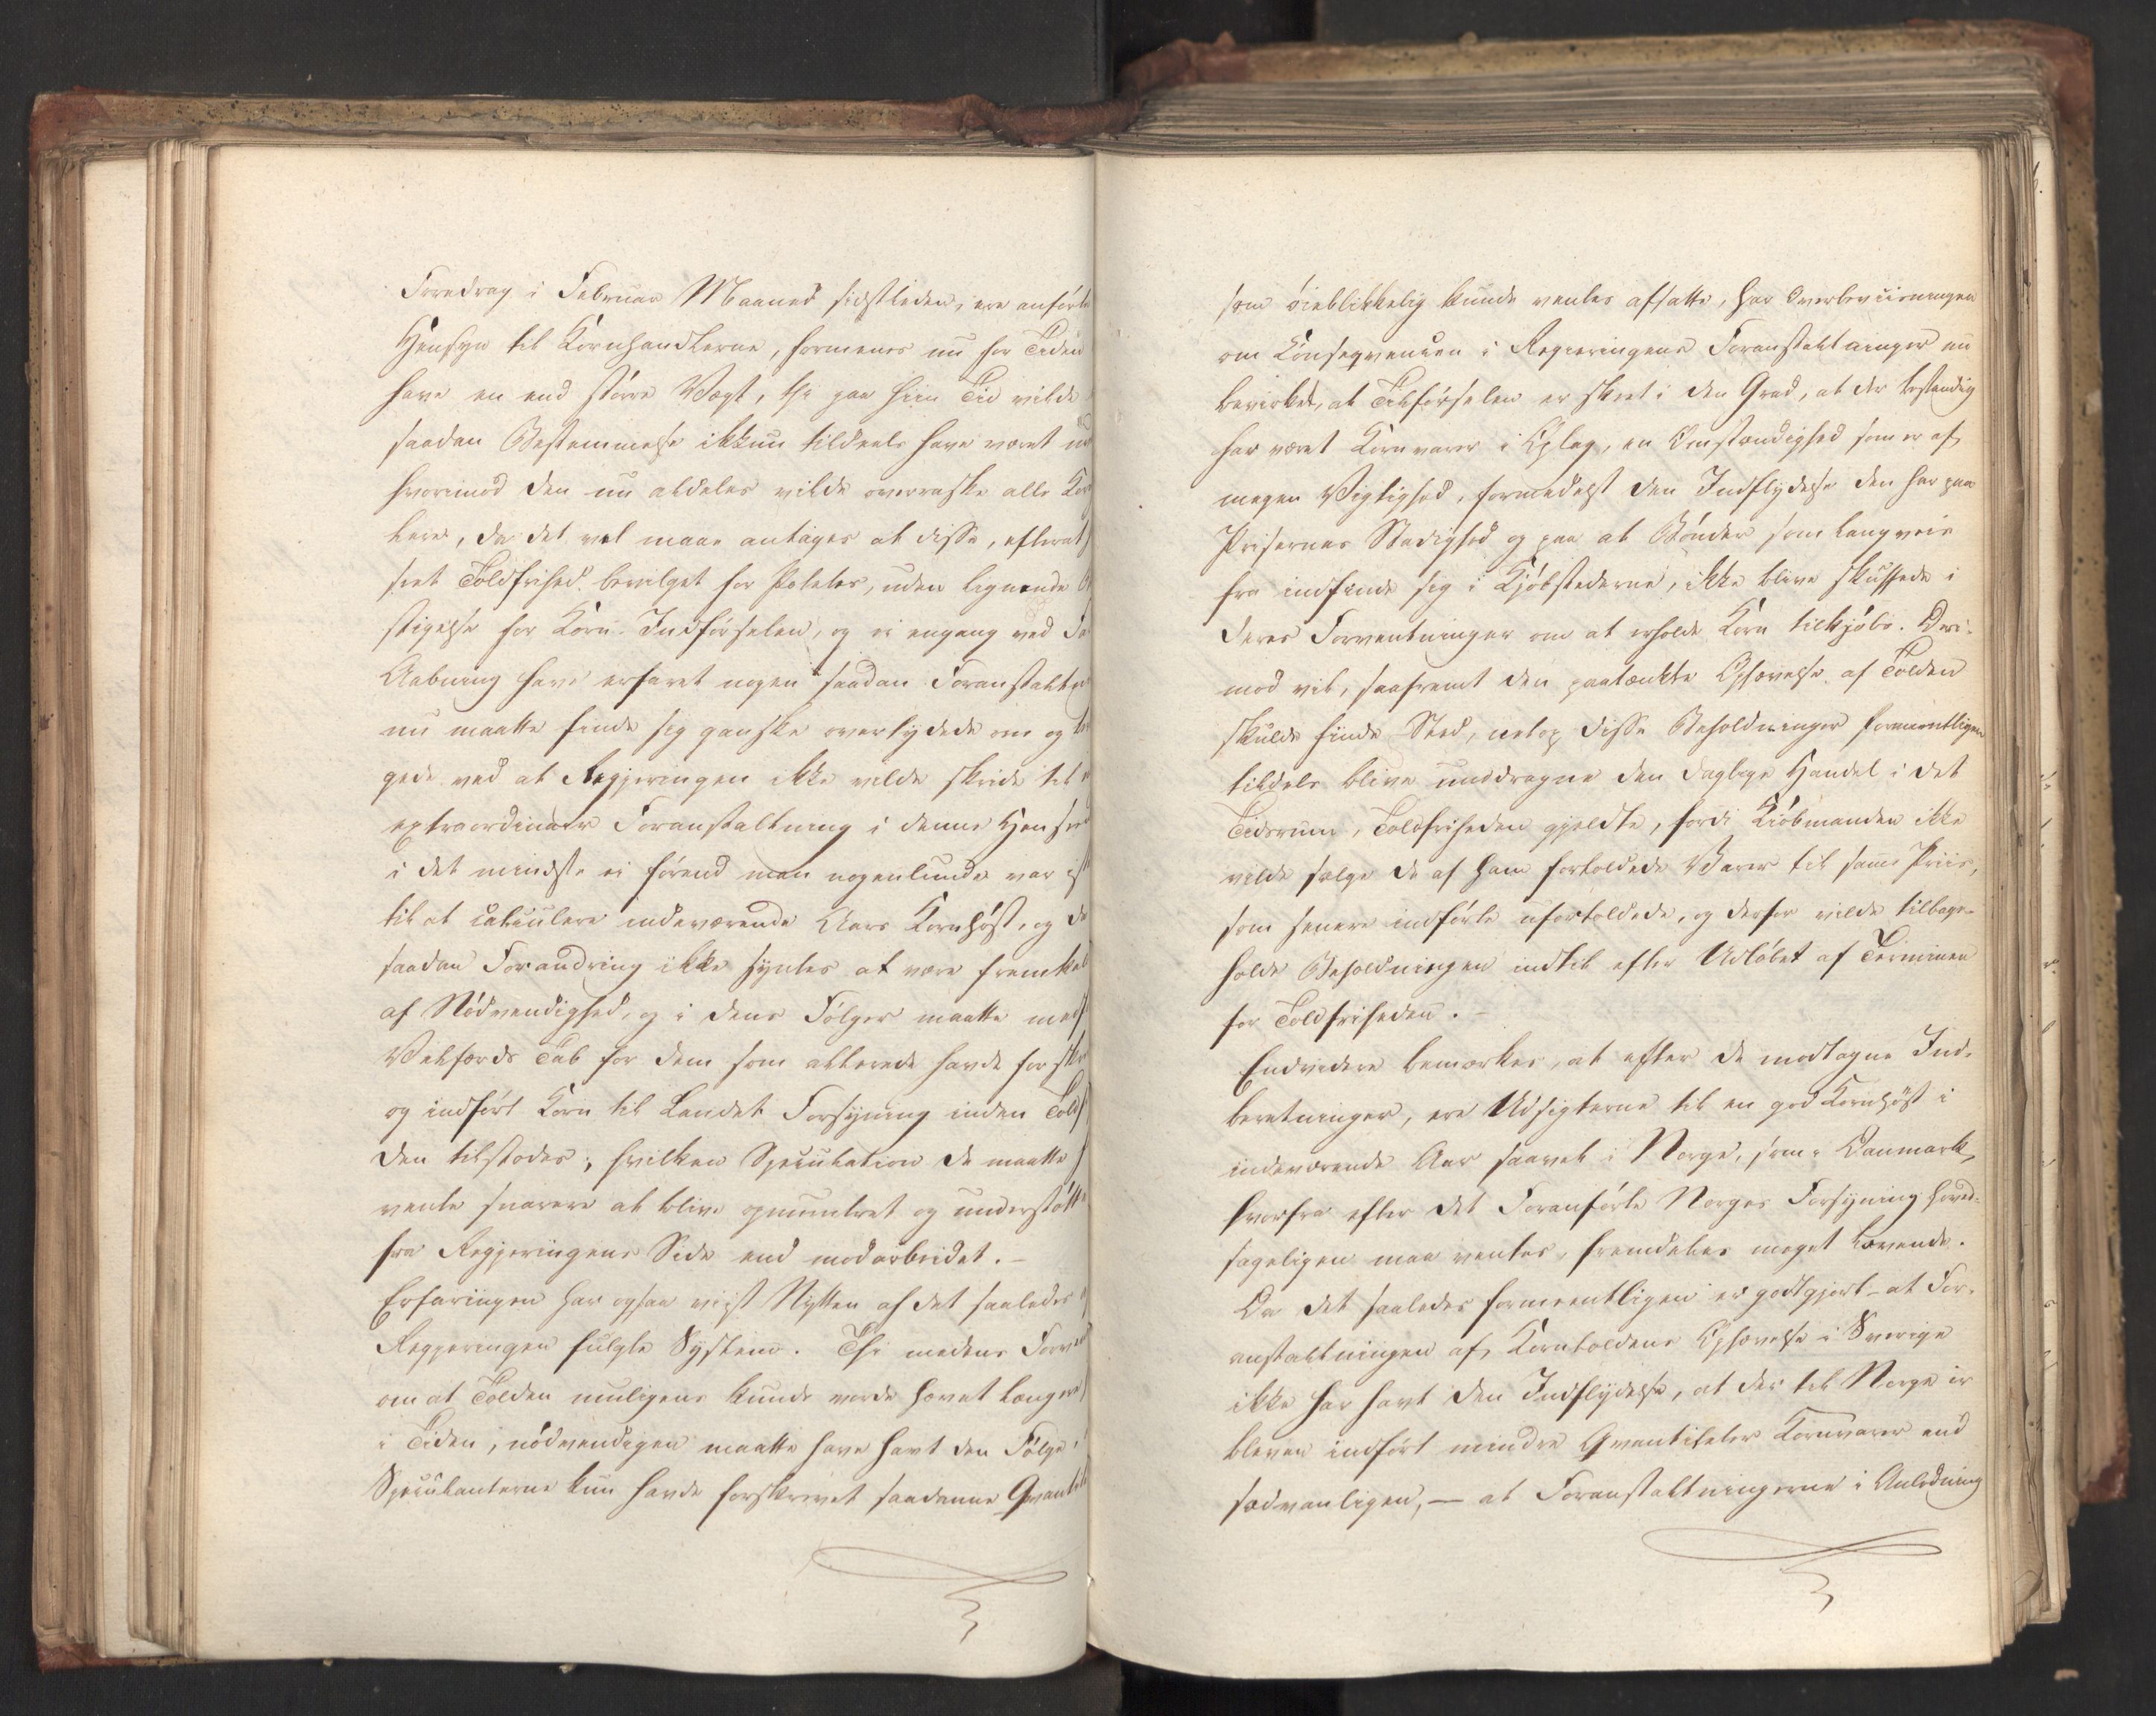 Foredrag i Februar Maaned sidstleden, ere anførte
Hensyn til Kornhandlerne, formenes nu for Tiden
have en end større Vægt, thi paa hiin Tid vilde
saadan Bestemmelse ikkun tildeels have været
hvorimod den nu aldeles vilde overraske alle
da det vel maae antages at disse, efterat
seet Toldfrihed bevilget for Poteter, uden lignende
for Korn-Indførselen, og ei engang ved
Aabning have erfaret nogen saadan
nu maatte finde sig ganske overtydede om og
ved at Regjeringen ikke vilde skride til
extraordinair Foranstaltning i denne
i det mindste ei førend man nogenlunde var
til at calculere indeværende Aars Kornhøst, og
saadan Forandring ikke syntes at være
af Nødvendighed, og i dens Følger maatte
Velfærds Tab for dem som allerede havde
og indført Korn til Landets Forsyning inden
den tilstodes; hvilken Speculation de maatte
vente snarere at blive opmuntret og understøtte
fra Regjeringens Side end modarbeidet. –
Erfaringen har ogsaa viist Nytten af det saaledes
Regjeringen fulgte System. Thi medens
om at Tolden muligens kunde vorde hævet længere
i Tiden, nødvendigen maatte have havt den Følge
Speculanterne kun havde forskrevet saadanne
som øieblikkelig kunde ventes afsatte, har Overbeviisningen
om Conseqvencen i Regjeringens Foranstaltninger nu
bevirket, at Tilførselen er skeet i den Grad, at der bestandig
har været Kornvarer i Oplag, en Omstændighed som er af
megen Vigtighed, formedelst den Indflydelse den har paa
Prisernes Stadighed og paa at Bønder som langveis
fra indfinde sig i Kjøbstæderne, ikke blive skuffede i
deres Forventninger om at erholde Korn tilkjøbs. Deri-
mod vil, saafremt den paatænkte Ophævelse af Tolden
skulde finde Sted, netop disse Beholdninger formeentligen
tildels blive unddragne den daglige Handel i det
Tidsrum, Toldfriheden gjeldte, fordi Kiøbmanden ikke
vilde sælge de af ham fortoldede Varer til samme Priis,
som senere indførte ufortoldede, og derfor vilde tilbage-
holde Beholdningen indtil efter Udløbet af Terminen
for Toldfriheden. –
Endvidere bemærkes, at efter de modtagne Ind-
beretninger, ere Udsigterne til en god Kornhøst i
indeværende Aar saavel i Norge, som i Danmark,
hvorfra efter det Foranførte Norges Forsyning hoved-
sageligen maa ventes, fremdeles meget lovende.
Da det saaledes formeentligen er godtgjort – at For-
anstaltningen af Korntoldens Ophævelse i Sverige
ikke har havt den Indflydelse, at der til Norge er
bleven indført mindre Qvantiteter Kornvarer end
sædvanligen, – at Foranstaltningerne i Anledning